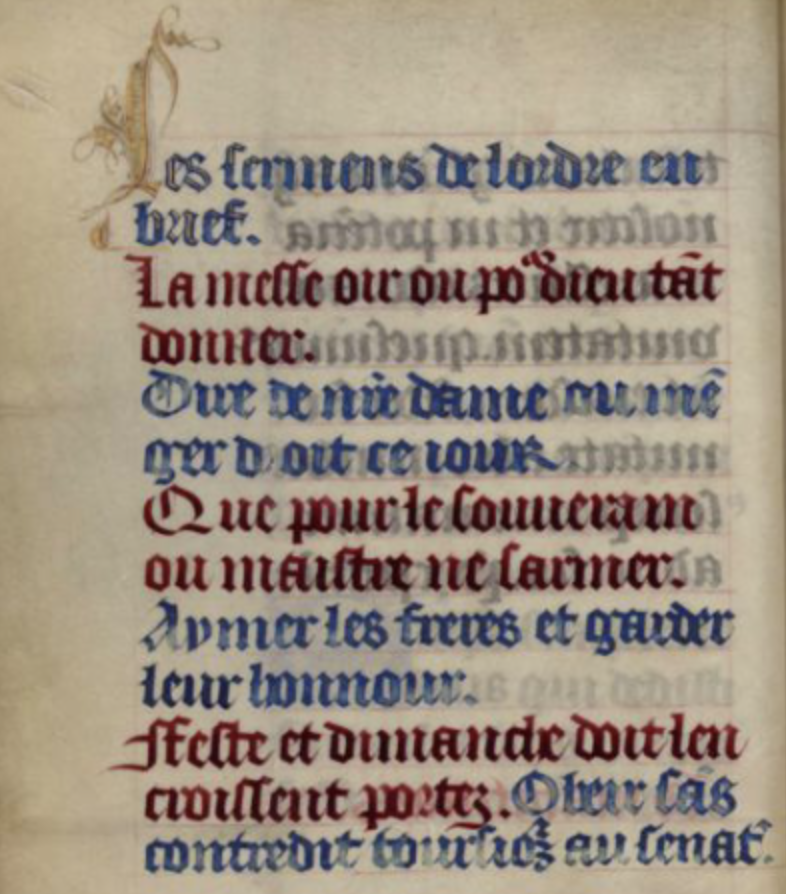 Les sermens de lordre en
brief.
La messe oir ou po᷑ dieu tāt
donner.
Dire de nr̄e dame ou mē
ger doit ce iour
Que pour le souuerain
ou maistre ne sarmer.
Aymer les freres et garder
leur honnour.
ffeste et dimanche doit len
croissent portez. Obeir sās
contredit tousio᷑s au senat᷑.